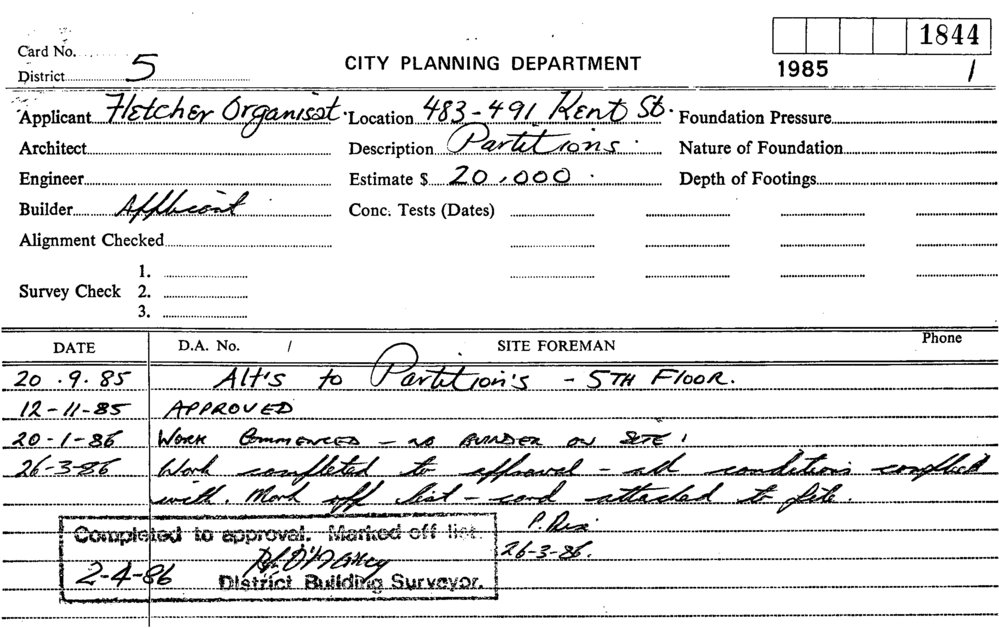 1844
Card No.
District 5
CITY PLANNING DEPARTMENT
1985 /
Applicant Fletcher Organisat. Location 483-491 Kent St. Foundation Pressure
Architect Description Partitions. Nature of Foundation
Engineer Estimate $ 20,000. Depth of Footings
Builder Applicant Conc. Tests (Dates)
Alignment Checked
1.
Survey Check 2.
3.
DATE D.A. No. / SITE FOREMAN Phone
20.9.85 Alt's to Partition's - 5TH FLOOR.
12-11-85 APPROVED
20-1-86 WORK COMMENCED - NO BUILDER ON SITE!
26-3-86 Work completed to approval - all conditions complied
with. Mark off list - card attached to file.
26-3-86.
Completed to approval. Marked off list.
2-4-86
District Building Surveyor.